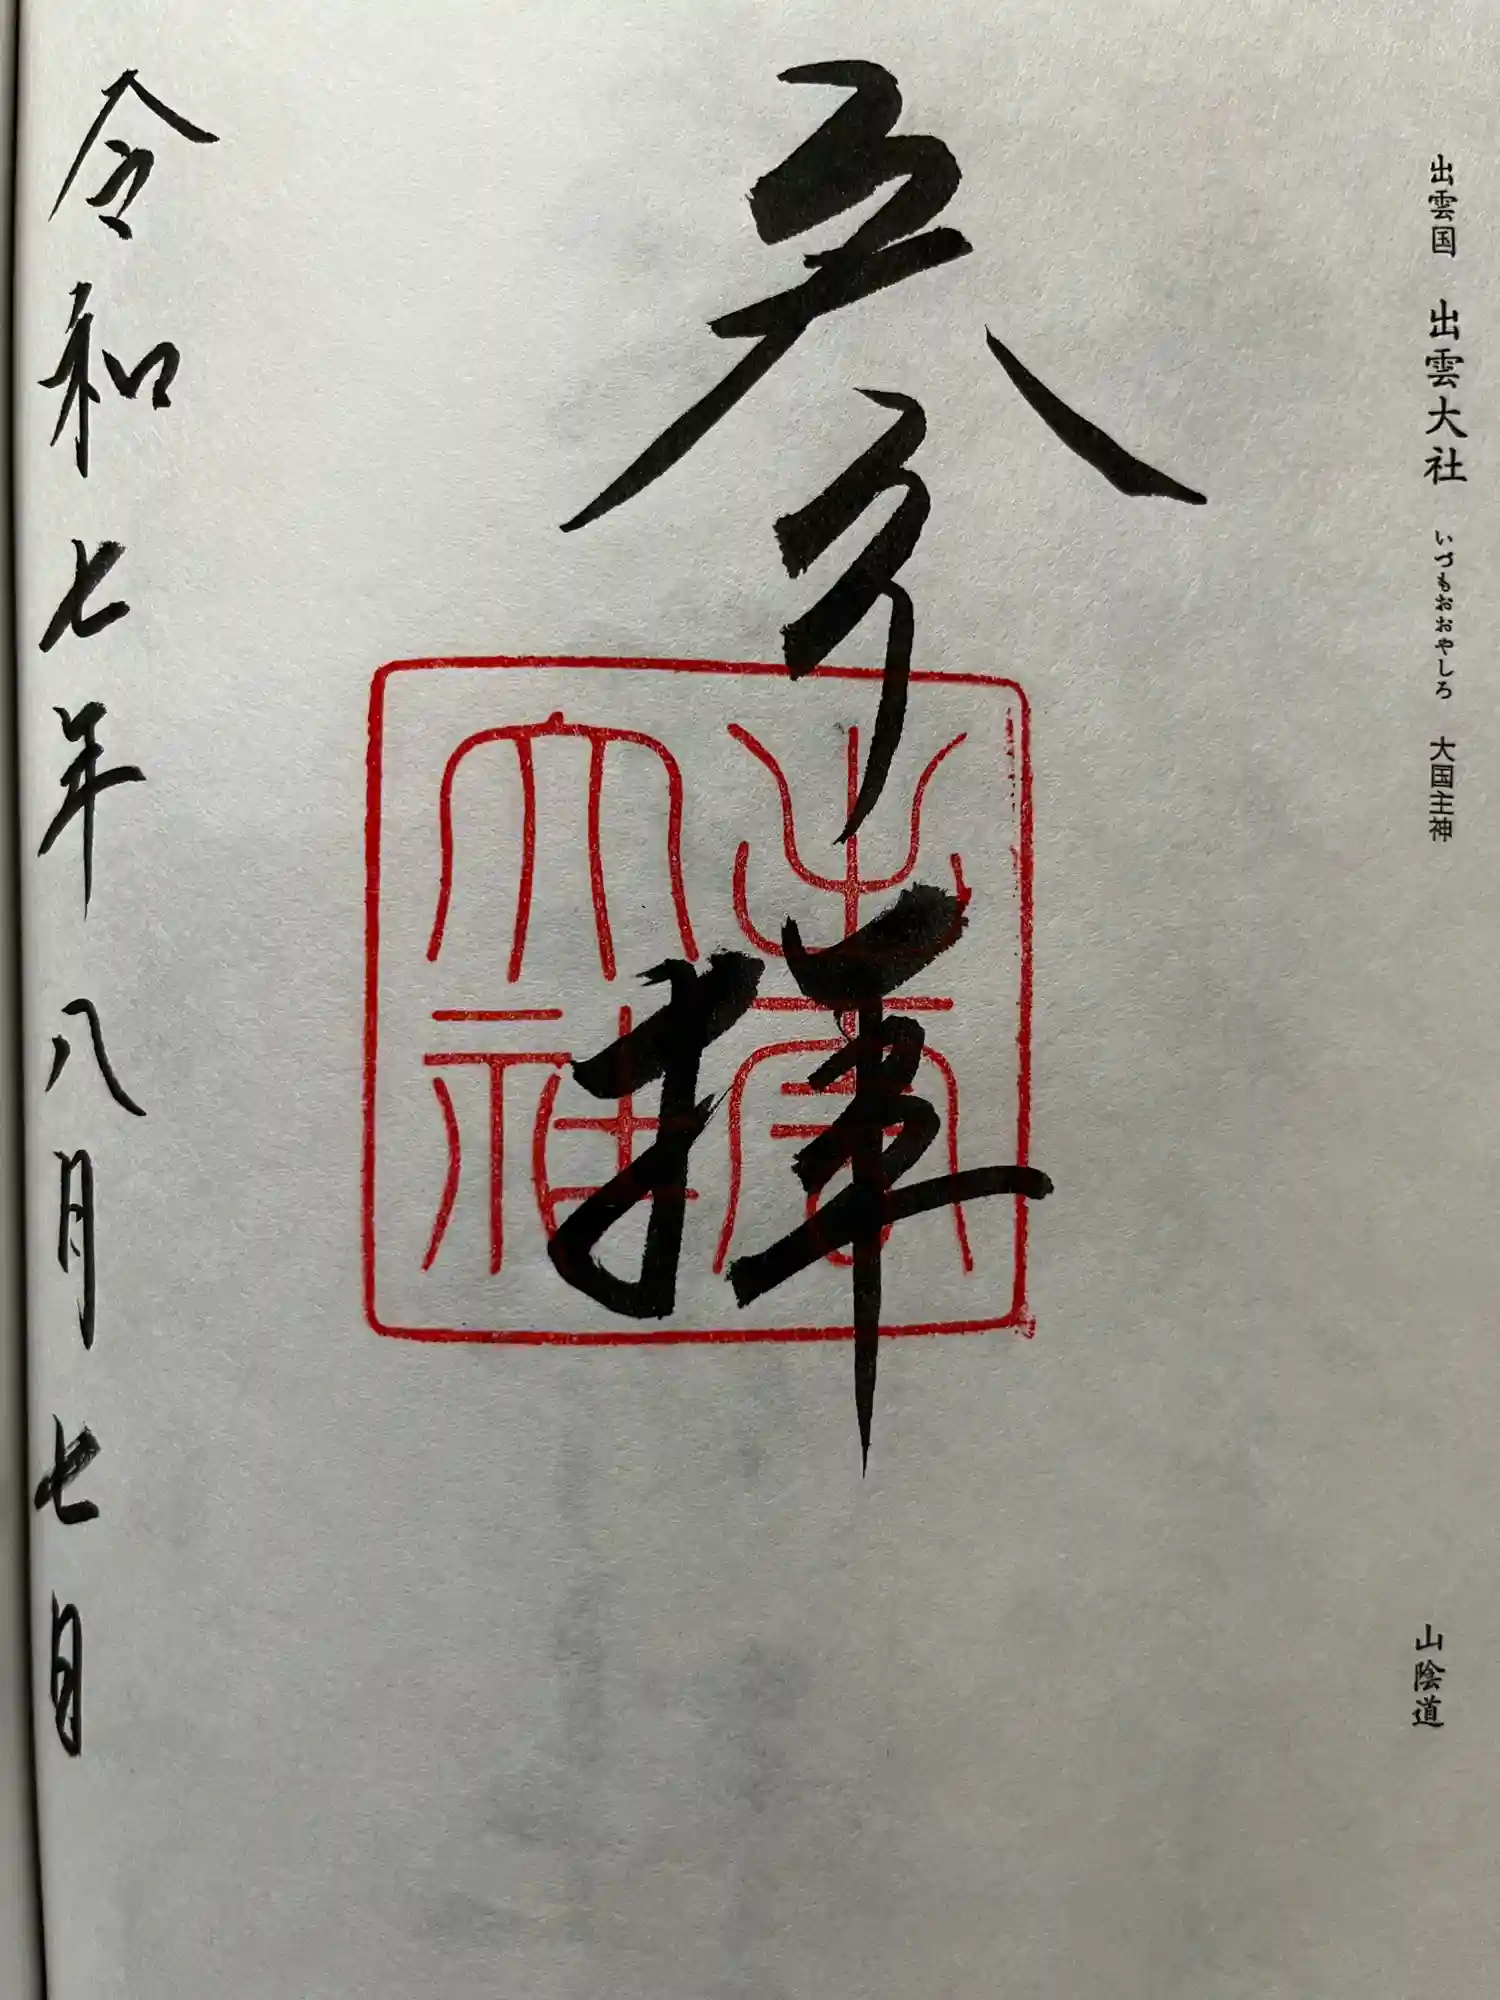 出雲国 出雲大社 いづもおおやしろ 大国主神
山陰道
参拝
出雲
大社
令和七年八月七日